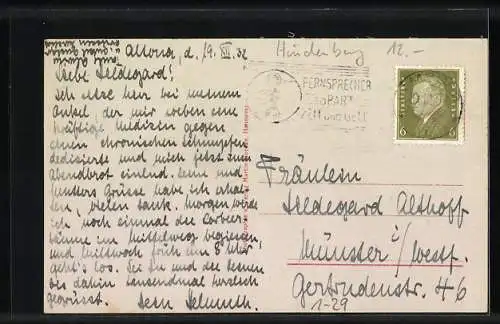 Altona, d. 19. VII. 32
Liebe Hildegard!
Ich sitze hier bei meinem
Onkel, der mir soeben eine
kräftige Medizin gegen
einen chronischen Schnupfen
dedizierte und mich jetzt zum
Abendbrot einlud. Deine und
Grüsse habe ich erhal-
ten, vielen Dank. Morgen werde
ich noch einmal die Lorbeer-
bäume im Mittelweg begiessen,
und Mittwoch früh um 8 Uhr
geht's los. Sei Du und die Deinen
bis dahin tausendmal herzlich
gegrüsst. Dein Helmuth.
Hindenburg 12.-
FERNSPRECHER
ERSPART
ZEIT UND GELD
6 6
Fräulein
Hildegard Althoff
Münster i/Westf.
Gertrudenstr. 46
1-29